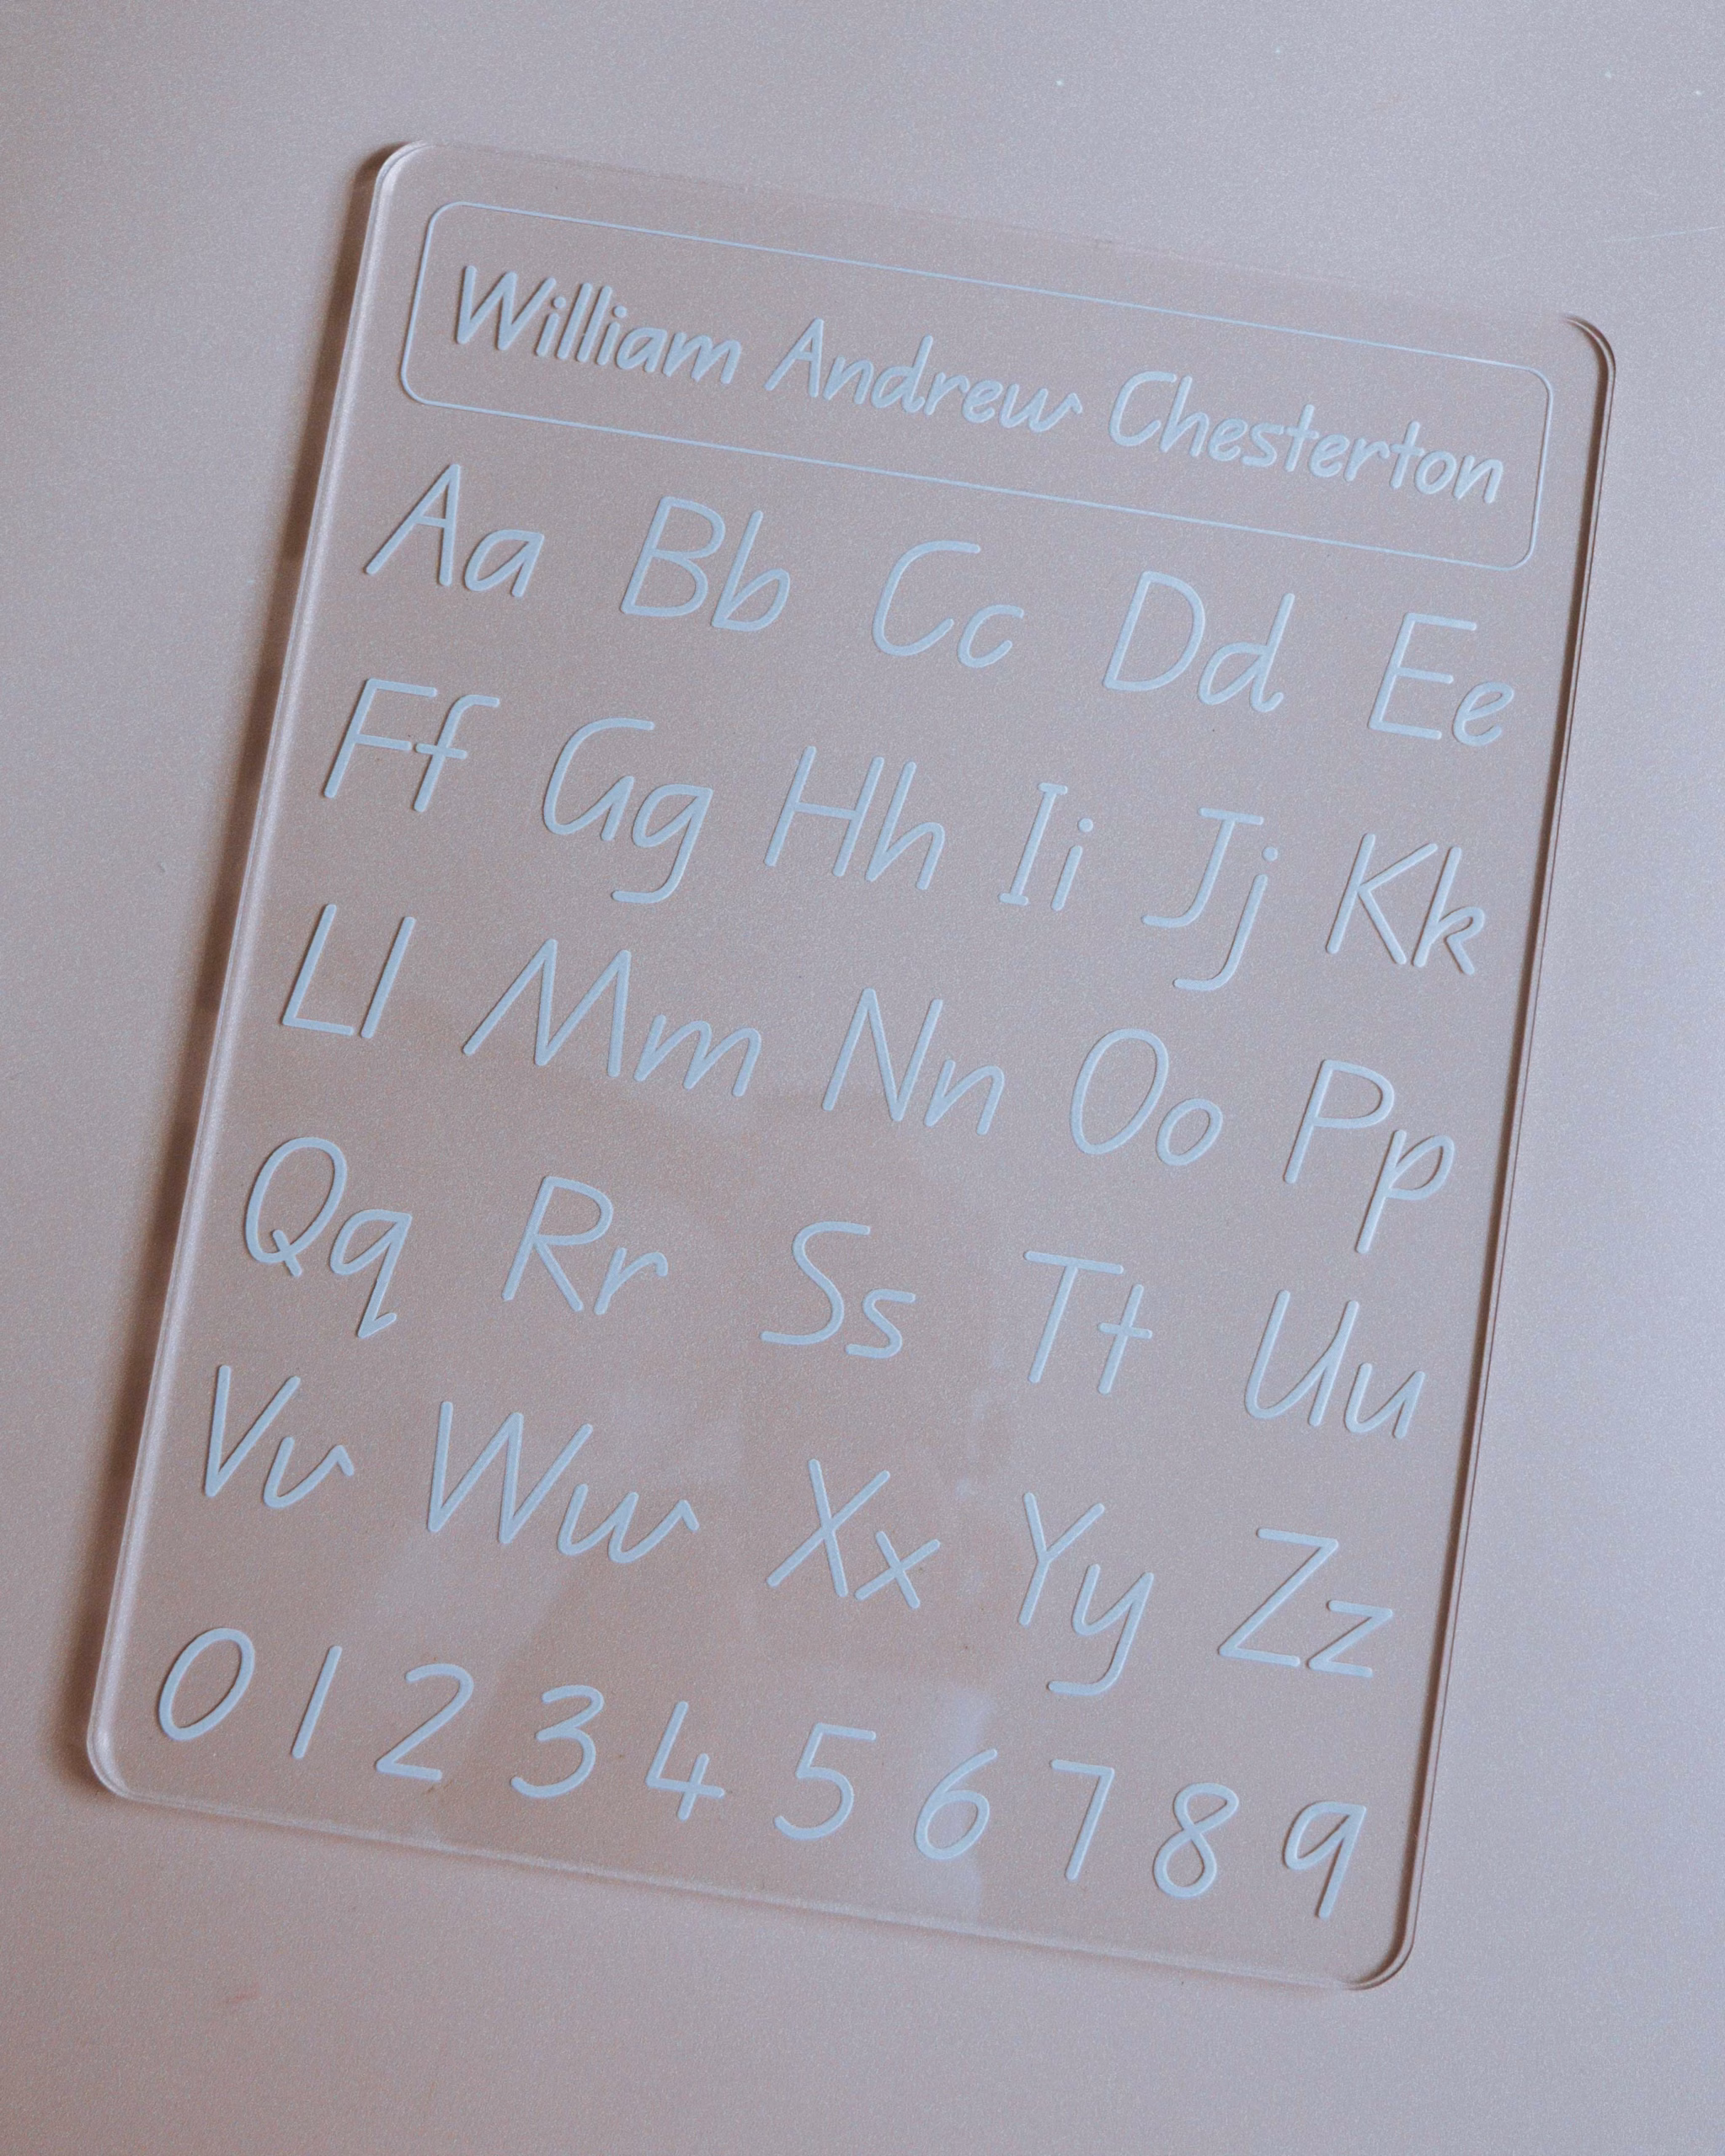 William Andrew Chesterton
Aa Bb Cc Dd Ee
Ff Gg Hh Ii Jj Kk
Ll Mm Nn Oo Pp
Qq Rr Ss Tt Uu
Vv Ww Xx Yy Zz
0 1 2 3 4 5 6 7 8 9